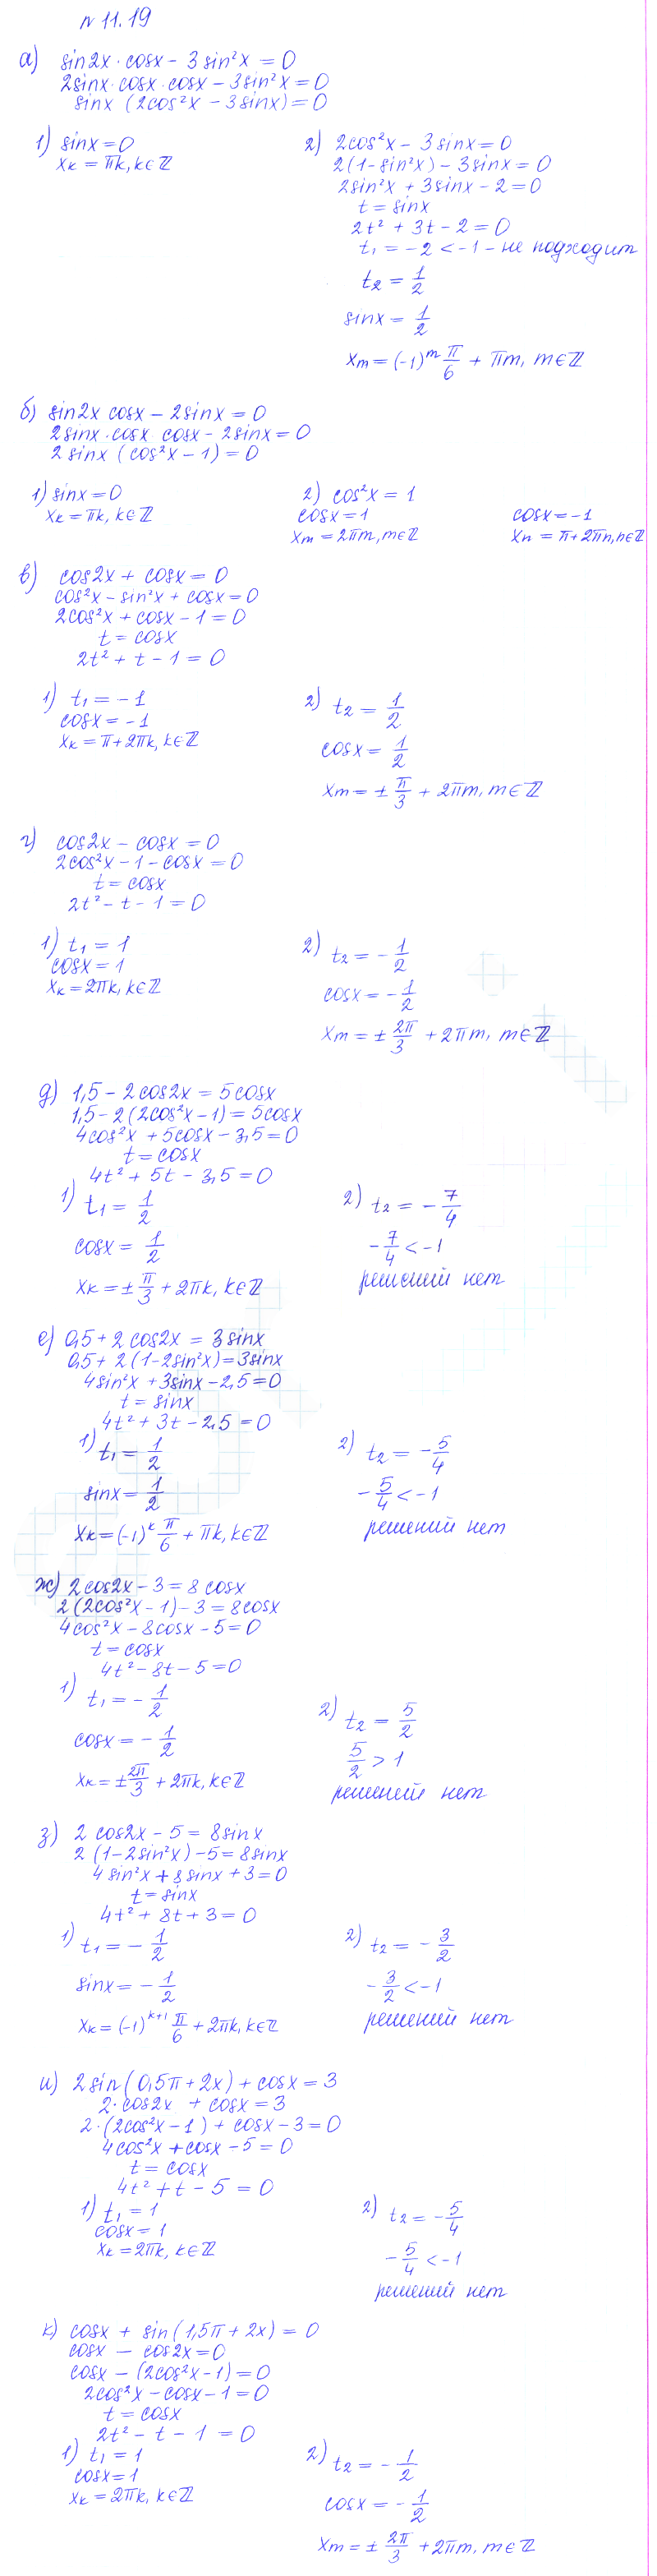 № 11.19
а) sin2x · cosx − 3 sin²x = 0
2sinx · cosx · cosx − 3sin²x = 0
sinx (2cos²x − 3sinx) = 0
1) sinx = 0
xₖ = πk, k∈ℤ
2) 2cos²x − 3sinx = 0
2(1−sin²x) − 3sinx = 0
2sin²x + 3sinx − 2 = 0
t = sinx
2t² + 3t − 2 = 0
t₁ = −2 < −1 − не подходит
t₂ = 1/2
sinx = 1/2
xₘ = (−1)ᵐ π/6 + πm, m∈ℤ
б) sin2x cosx − 2sinx = 0
2sinx · cosx cosx − 2sinx = 0
2 sinx (cos²x − 1) = 0
1) sinx = 0
xₖ = πk, k∈ℤ
2) cos²x = 1
cosx = 1
xₘ = 2πm, m∈ℤ
cosx = −1
xₙ = π + 2πn, n∈ℤ
в) cos2x + cosx = 0
cos²x − sin²x + cosx = 0
2cos²x + cosx − 1 = 0
t = cosx
2t² + t − 1 = 0
1) t₁ = −1
cosx = −1
xₖ = π + 2πk, k∈ℤ
2) t₂ = 1/2
cosx = 1/2
xₘ = ± π/3 + 2πm, m∈ℤ
г) cos2x − cosx = 0
2cos²x − 1 − cosx = 0
t = cosx
2t² − t − 1 = 0
1) t₁ = 1
cosx = 1
xₖ = 2πk, k∈ℤ
2) t₂ = −1/2
cosx = −1/2
xₘ = ± 2π/3 + 2πm, m∈ℤ
д) 1,5 − 2cos2x = 5cosx
1,5 − 2(2cos²x − 1) = 5cosx
4cos²x + 5cosx − 3,5 = 0
t = cosx
4t² + 5t − 3,5 = 0
1) t₁ = 1/2
cosx = 1/2
xₖ = ± π/3 + 2πk, k∈ℤ
2) t₂ = −7/4
−7/4 < −1
решений нет
е) 0,5 + 2cos2x = 3sinx
0,5 + 2(1−2sin²x) = 3sinx
4sin²x + 3sinx − 2,5 = 0
t = sinx
4t² + 3t − 2,5 = 0
1) t₁ = 1/2
sinx = 1/2
xₖ = (−1)ᵏ π/6 + πk, k∈ℤ
2) t₂ = −5/4
−5/4 < −1
решений нет
ж) 2cos2x − 3 = 8cosx
2(2cos²x − 1) − 3 = 8cosx
4cos²x − 8cosx − 5 = 0
t = cosx
4t² − 8t − 5 = 0
1) t₁ = −1/2
cosx = −1/2
xₖ = ± 2π/3 + 2πk, k∈ℤ
2) t₂ = 5/2
5/2 > 1
решений нет
з) 2 cos2x − 5 = 8sinx
2 (1−2sin²x) − 5 = 8sinx
4 sin²x + 8sinx + 3 = 0
t = sinx
4t² + 8t + 3 = 0
1) t₁ = −1/2
sinx = −1/2
xₖ = (−1)ᵏ⁺¹ π/6 + 2πk, k∈ℤ
2) t₂ = −3/2
−3/2 < −1
решений нет
и) 2sin(0,5π + 2x) + cosx = 3
2 · cos2x + cosx = 3
2 · (2cos²x − 1) + cosx − 3 = 0
4cos²x + cosx − 5 = 0
t = cosx
4t² + t − 5 = 0
1) t₁ = 1
cosx = 1
xₖ = 2πk, k∈ℤ
2) t₂ = −5/4
−5/4 < −1
решений нет
к) cosx + sin(1,5π + 2x) = 0
cosx − cos2x = 0
cosx − (2cos²x − 1) = 0
2cos²x − cosx − 1 = 0
t = cosx
2t² − t − 1 = 0
1) t₁ = 1
cosx = 1
xₖ = 2πk, k∈ℤ
2) t₂ = −1/2
cosx = −1/2
xₘ = ± 2π/3 + 2πm, m∈ℤ